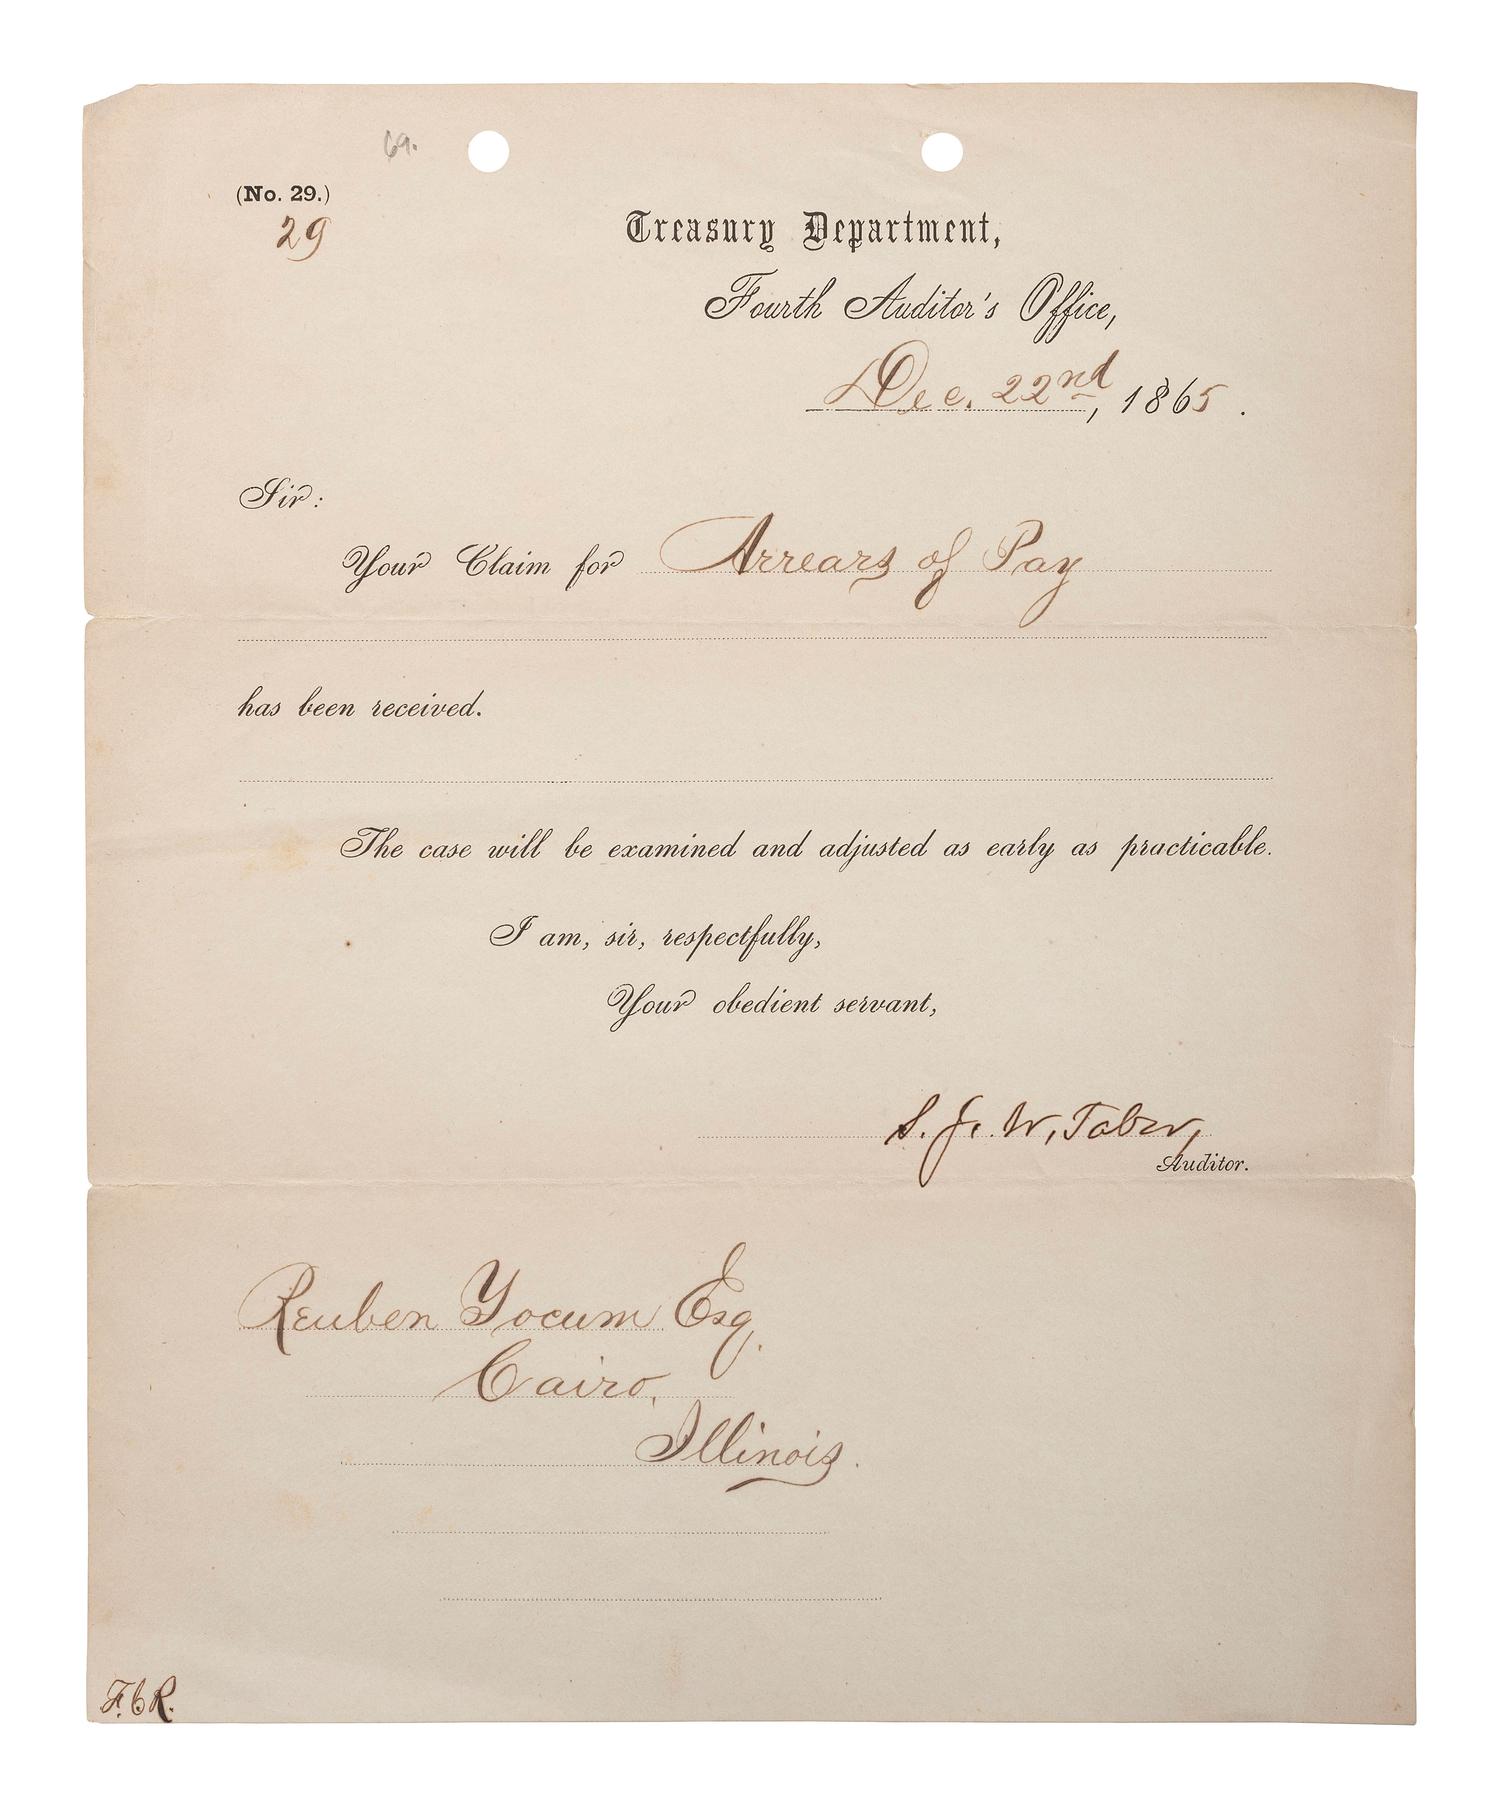 69.
(No. 29.)
29
Treasury Department,
Fourth Auditor's Office,
Dec. 22nd, 1865.
Sir:
Your Claim for Arrears of Pay
has been received.
The case will be examined and adjusted as early as practicable.
I am, sir, respectfully,
Your obedient servant,
S. J. W. Taber,
Auditor.
Reuben Yocum Esq.
Cairo,
Illinois.
F.C.R.